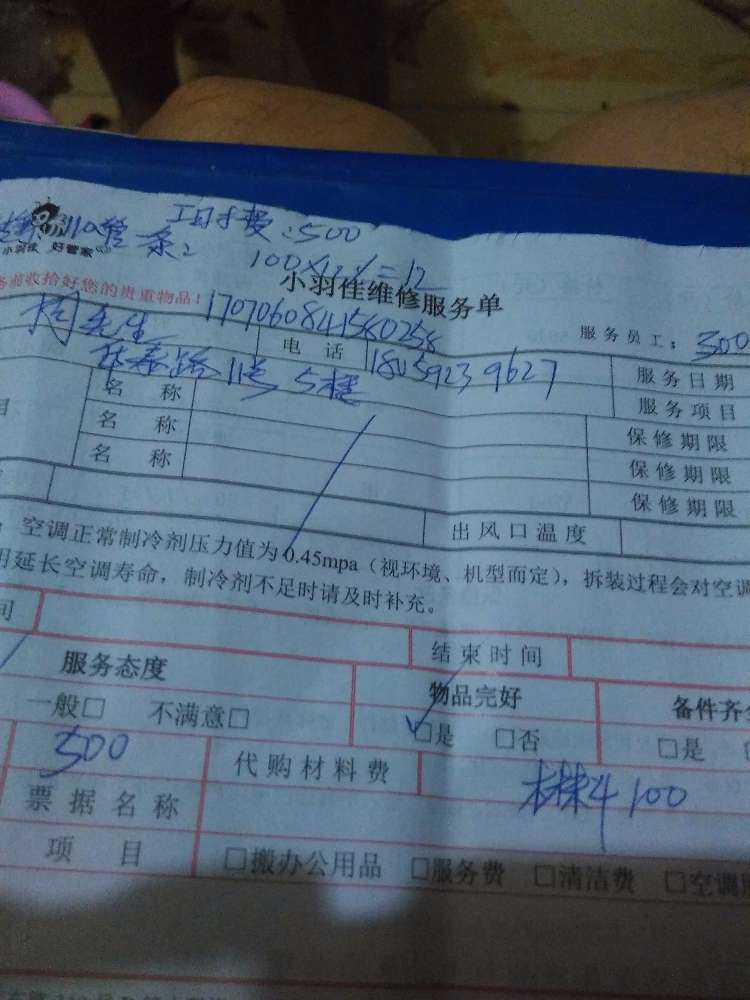 工时费:500
110管条2
小羽佳 好管家
100×12%=12
小羽佳维修服务单
务前收拾好您的贵重物品!
1707060841580258
服务员工:300
先生
电话 18059239627
服务日期
泰路11号5楼
名称
服务项目
名称
保修期限
名称
保修期限
保修期限
出风口温度
空调正常制冷剂压力值为0.45mpa(视环境、机型而定),拆装过程会对空调
用延长空调寿命,制冷剂不足时请及时补充。
间
结束时间
服务态度
物品完好
备件齐全
一般□ 不满意□
□是 □否
□是
500
代购材料费
材料100
票据名称
项目
□搬办公用品 □服务费 □清洁费 □空调